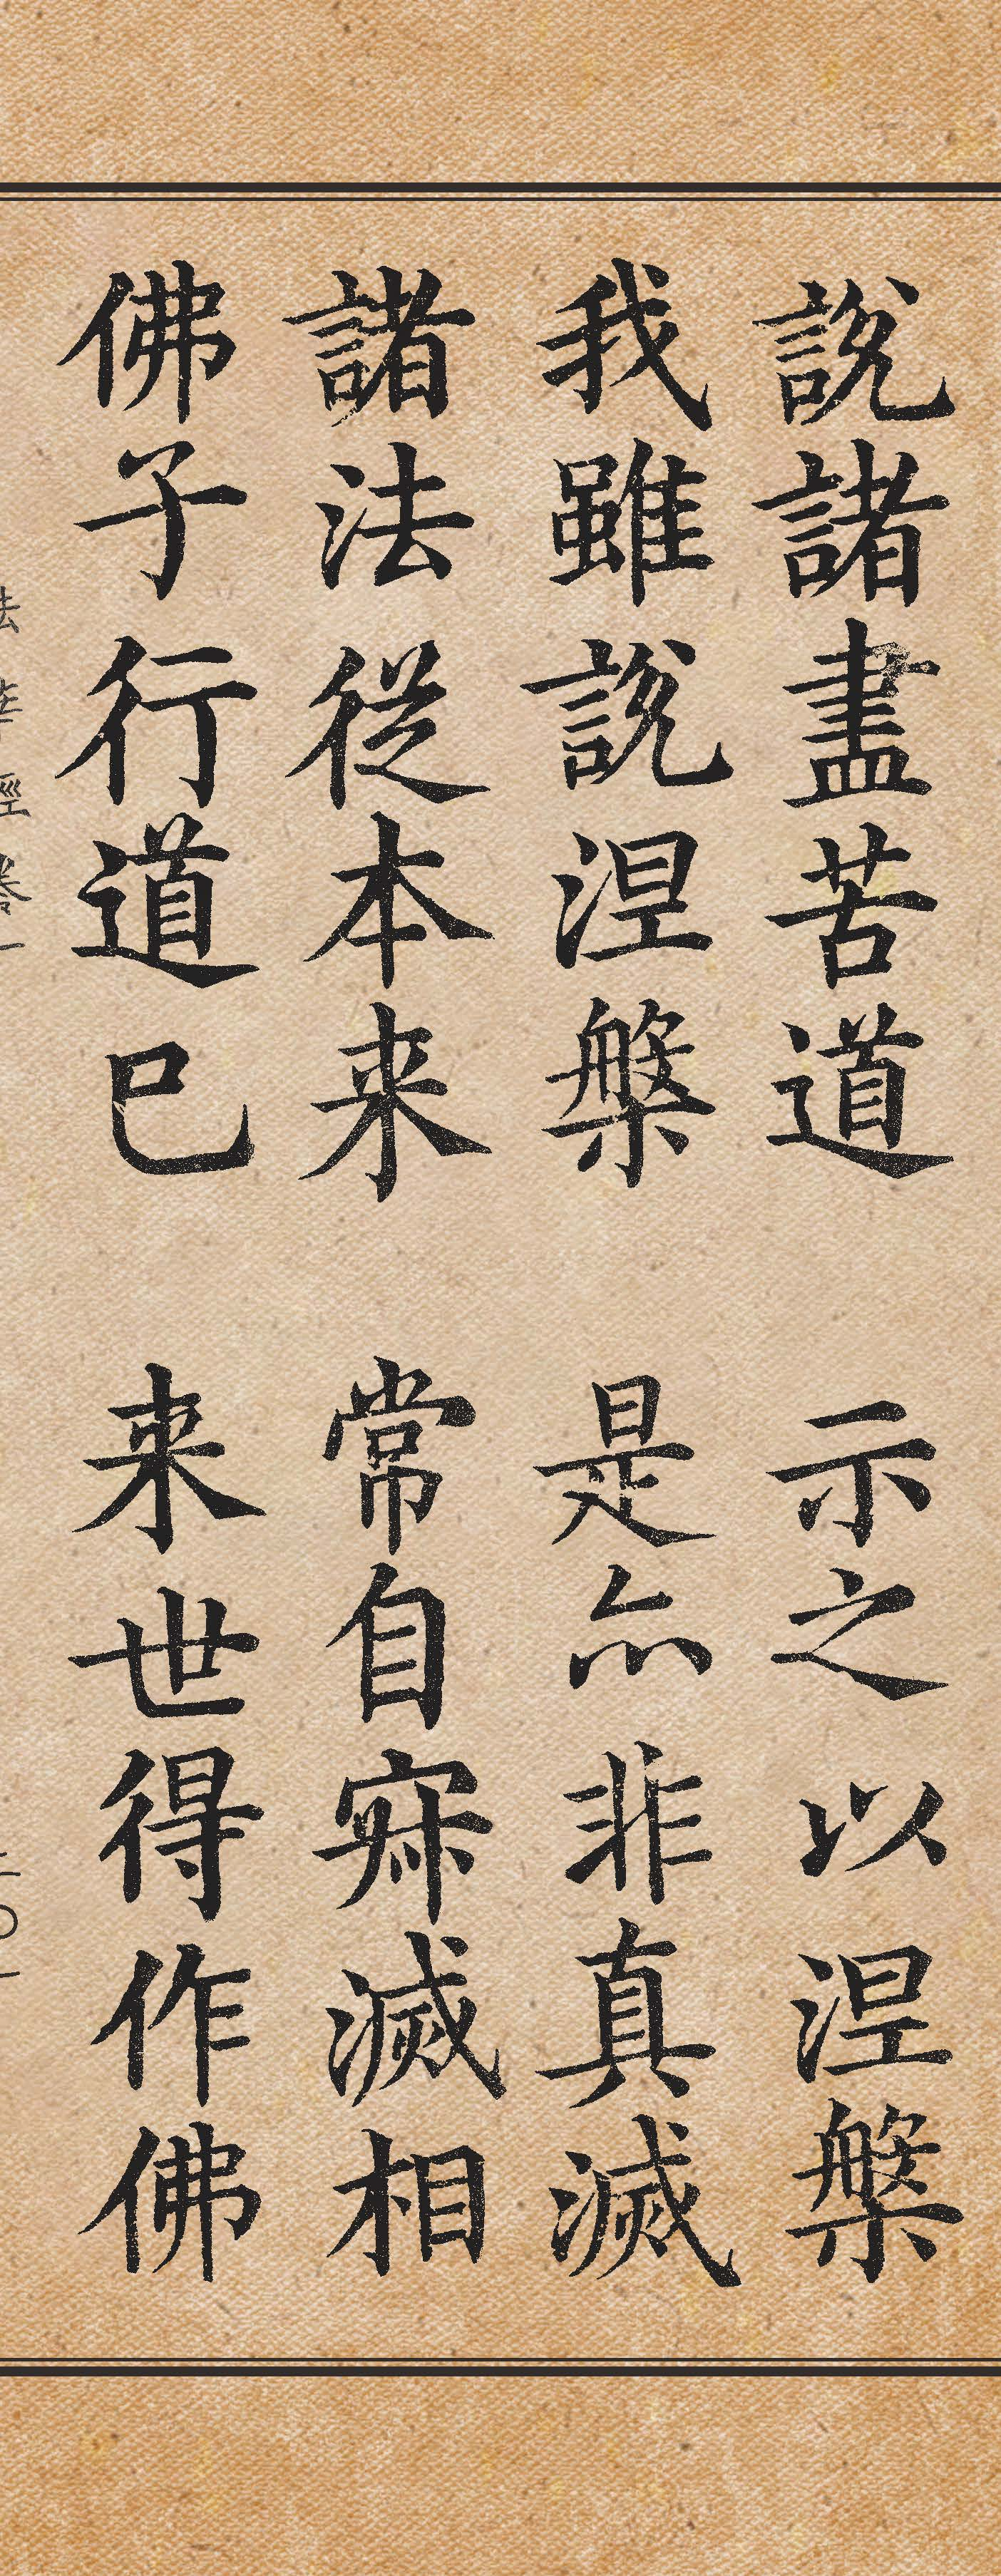 說諸盡苦道 示之以涅槃
我雖說涅槃 是亦非真滅
諸法從本来 常自寂滅相
佛子行道已 来世得作佛
法華經卷一 二〇一